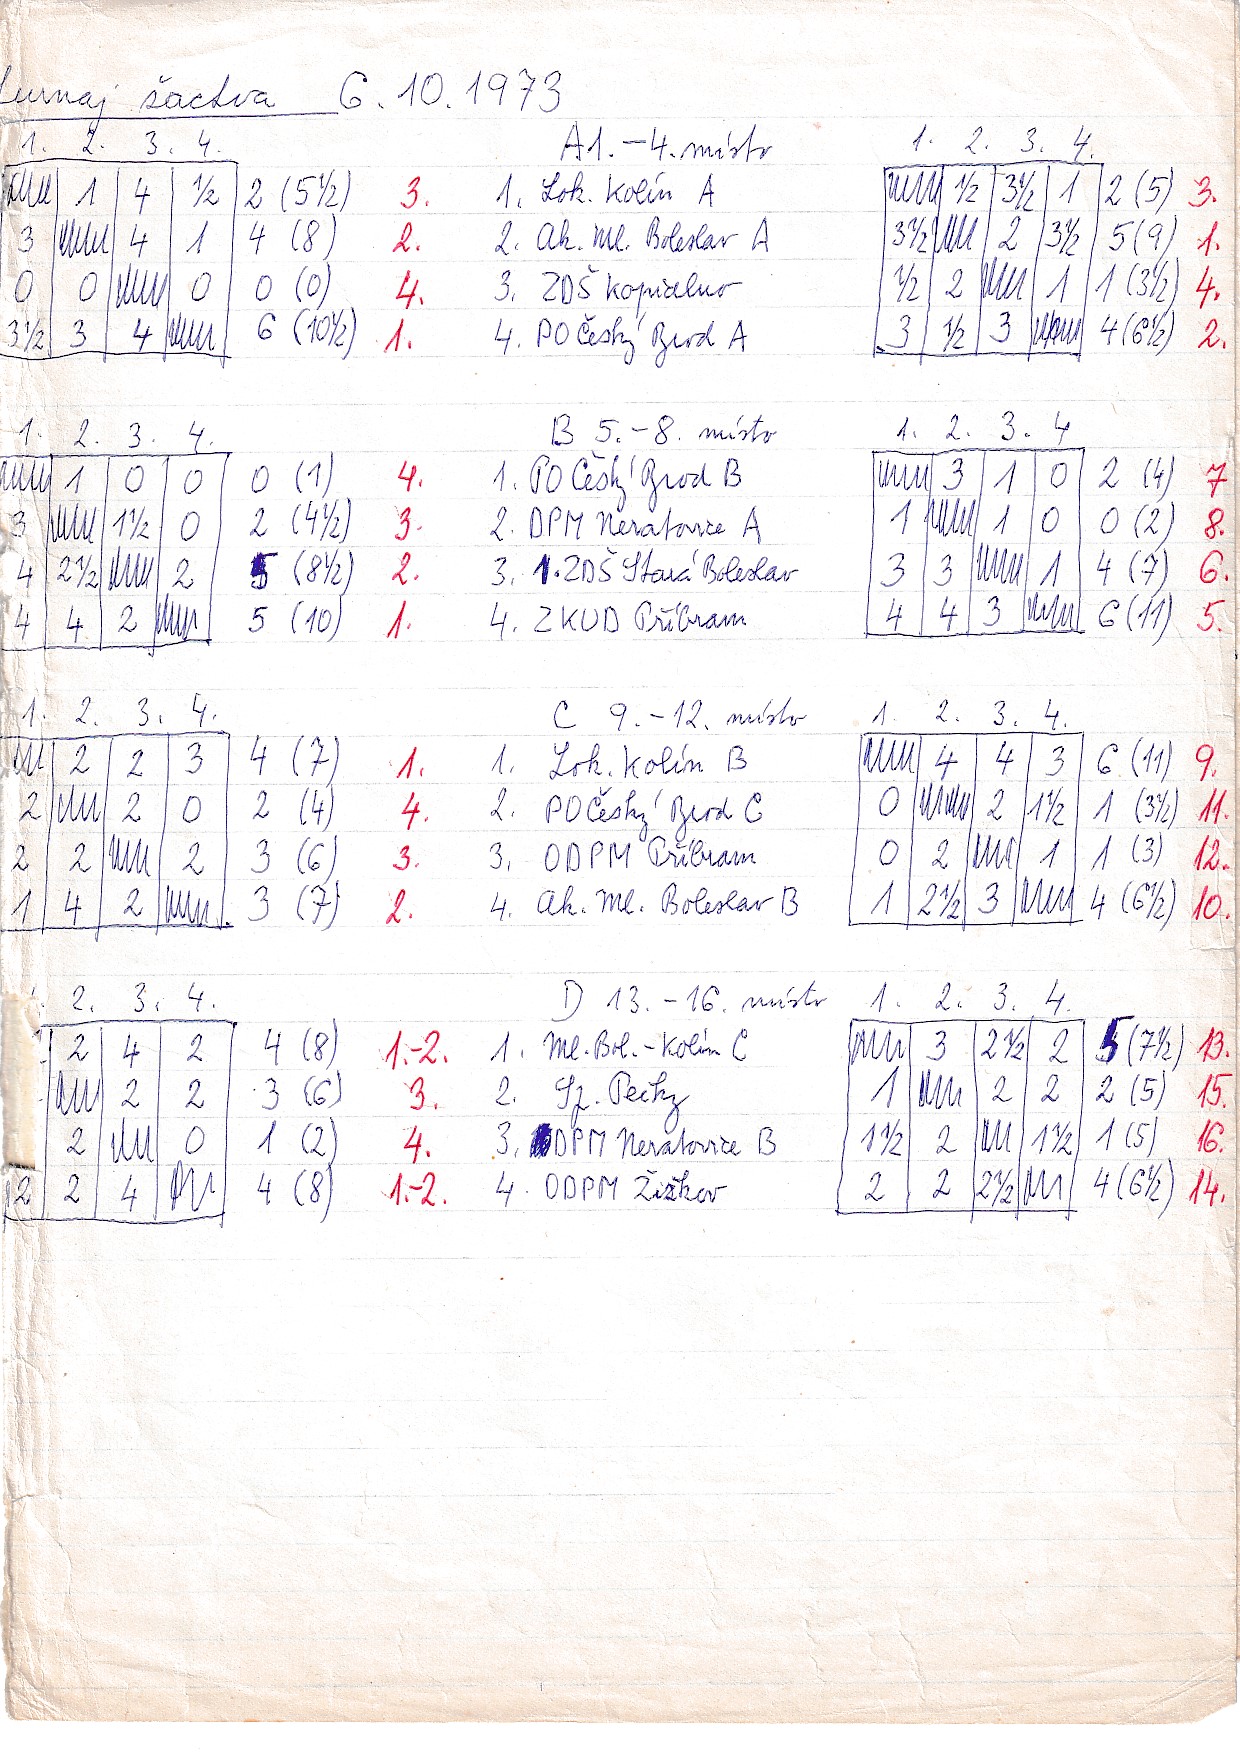 turnaj žactva 6.10.1973
1. 2. 3. 4. A 1.-4. místo 1. 2. 3. 4.
1 4 ½ 2 (5½) 3. 1. Lok. Kolín A ½ 3½ 1 2 (5) 3.
3 4 1 4 (8) 2. 2. Ak. Ml. Boleslav A 3½ 2 3½ 5 (9) 1.
0 0 0 0 (0) 4. 3. ZDŠ Kopidlno ½ 2 1 1 (3½) 4.
3½ 3 4 6 (10½) 1. 4. PO Český Brod A 3 ½ 3 4 (6½) 2.
1. 2. 3. 4. B 5.-8. místo 1. 2. 3. 4
1 0 0 0 (1) 4. 1. PO Český Brod B 3 1 0 2 (4) 7
3 1½ 0 2 (4½) 3. 2. DPM Neratovice A 1 1 0 0 (2) 8.
4 2½ 2 5 (8½) 2. 3. 1. ZDŠ Stará Boleslav 3 3 1 4 (7) 6.
4 4 2 5 (10) 1. 4. ZKUD Příbram 4 4 3 6 (11) 5.
1. 2. 3. 4. C 9.-12. místo 1. 2. 3. 4.
2 2 3 4 (7) 1. 1. Lok. Kolín B 4 4 3 6 (11) 9.
2 2 0 2 (4) 4. 2. PO Český Brod C 0 2 1½ 1 (3½) 11.
2 2 2 3 (6) 3. 3. ODPM Příbram 0 2 1 1 (3) 12.
1 4 2 3 (7) 2. 4. Ak. Ml. Boleslav B 1 2½ 3 4 (6½) 10.
2. 3. 4. D 13.-16. místo 1. 2. 3. 4.
2 4 2 4 (8) 1.-2. 1. Ml. Bol.-Kolín C 3 2½ 2 5 (7½) 13.
2 2 3 (6) 3. 2. Sp. Pečky 1 2 2 2 (5) 15.
2 0 1 (2) 4. 3. DPM Neratovice B 1½ 2 1½ 1 (5) 16.
2 2 4 4 (8) 1.-2. 4. ODPM Žižkov 2 2 2½ 4 (6½) 14.